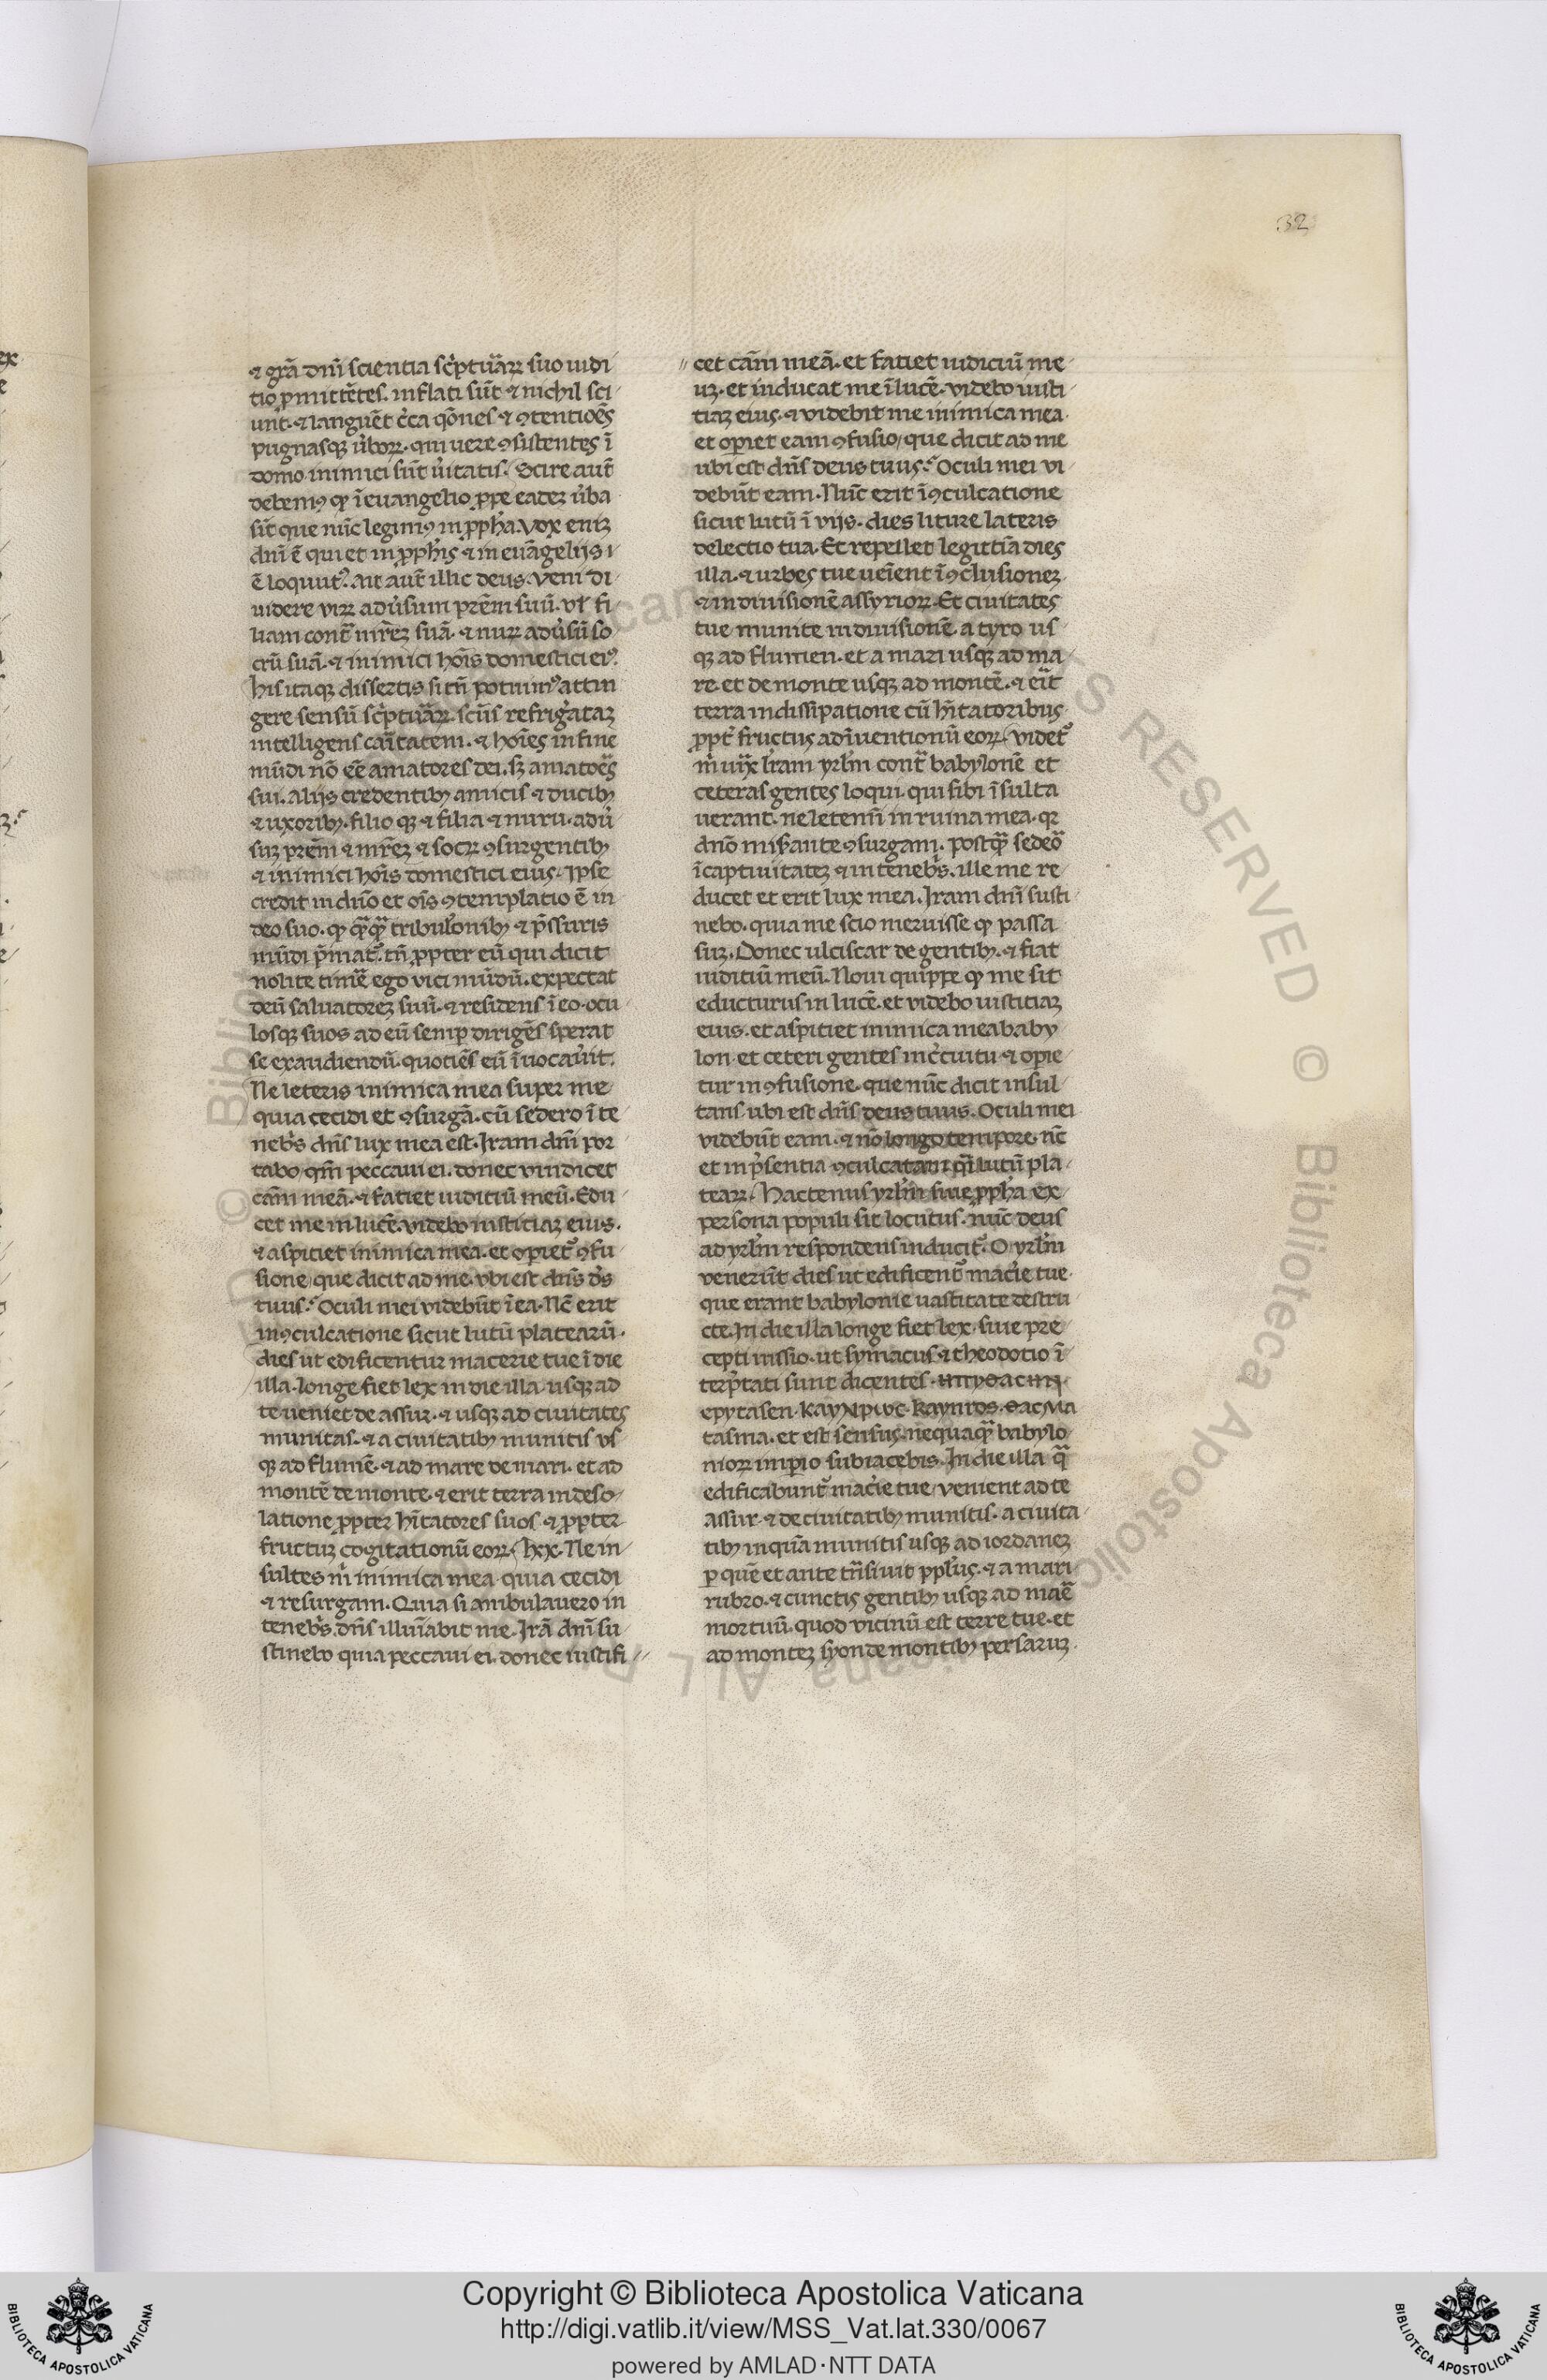 32
⁊ gr̃a dñi scientia sc̃ptuãꝝ suo iudi
tio ꝓmittẽtes. inflati sũt ⁊ nichil sci
unt. ⁊ languẽt c̃ca q̃ones ⁊ ꝯtentioẽs
pugnasqꝫ ũboꝝ. qui uere ꝯsistentes ĩ
domo inimici sũt ũitatis. Scire aut̃
debemꝰ ꝙ ĩ euangelio ꝓpe eadeꝫ ũba
sĩt que nũc legimꝰ in ꝓph̃a. Vox eniꝫ
dñi ẽ qui et in ꝓph̃is ⁊ in euãgelijs
ẽ loquutꝰ. ait aut̃ illic deus. veni di
uidere viꝝ adũsum pr̃em suũ. vl̓ fi
liam cont̃ mr̃eꝫ suã. ⁊ nuꝝ adũsũ so
crũ suã. ⁊ inimici hõis domestici eiꝰ.
his itaqꝫ dissertis si tñ potuimꝰ attin
gere sensũ sc̃ptuãꝝ. sciẽs refrig̃ataꝫ
intelligens car̃itatem. ⁊ hoĩes in fine
mũdi nõ eẽ amatores dei. sꝫ amatoẽs
sui. alijs credentibꝫ amicis ⁊ ducibꝫ
⁊ uxoribꝫ. filio qꝫ ⁊ filia ⁊ nuru. adũ
suꝫ pr̃em ⁊ mr̃eꝫ ⁊ socꝝ ꝯsurgentibꝫ
⁊ inimici hõis domestici eius. Ipse
credit in dño et oĩs ꝯtemplatio ẽ in
deo suo. ꝙ q̃q̃ tribul̃onibꝫ ⁊ p̃ssuris
mũdi p̃mat̃. tñ ꝓpter eũ qui dicit
nolite timẽ ego vici mũdũ. expectat
deũ saluatoreꝫ suũ. ⁊ residens ĩ eo. ocu
losqꝫ suos ad eũ semꝑ dirigẽs sperat
se exaudiendũ. quotiẽs eũ ĩuocaũit.
Ne leteris inimica mea super me
quia cecidi et ꝯsurgã. cũ sedero ĩ te
neb̃s dñs lux mea est. Iram dñi por
tabo qm̃ peccaui ei. donec vindicet
cãm meã. ⁊ fatiet iuditiũ meũ. Edu
cet me in lucẽ. videbo iustitiaꝫ eius.
⁊ aspitiet inimica mea. et operiet̃ ꝯfu
sione que dicit ad me. vbi est dñs d̃s
tuus. Oculi mei videbũt ĩ ea. Nc̃ erit
in ꝯculcatione sicut lutũ platearũ.
dies ut edificentur macerie tue ĩ die
illa. longe fiet lex in die illa. usqꝫ ad
te ueniet de assur. ⁊ usqꝫ ad ciuitates
munitas. ⁊ a ciuitatibꝫ munitis vs
qꝫ ad flumẽ. ⁊ ad mare de mari. et ad
montẽ de monte. ⁊ erit terra in deso
latione ꝓpter hĩtatores suos ⁊ ꝓpter
fructuꝫ cogitationũ eoꝝ. lxx. Ne in
sultes m̃ inimica mea quia cecidi
⁊ resurgam. Quia si ambulauero in
teneb̃s. dñs illuĩabit me. Irã dñi su
stinebo quia peccaui ei. donec iustifi
cet cãm meã. et fatiet iudiciũ me
uꝫ. et inducat me ĩ lucẽ. videbo iusti
tiaꝫ eius. ⁊ videbit me inimica mea.
et operiet eam ꝯfusio, que dicit ad me
ubi est dñs deus tuus. Oculi mei vi
debũt eam. Nũc erit ĩ ꝯculcatione
sicut lutũ ĩ vijs. dies liture lateris
delectio tua. Et repellet legittĩa dies
illa. ⁊ urbes tue ueĩent ĩ ꝯclusioneꝫ.
⁊ in diuisionẽ assyrioꝝ. Et ciuitates
tue munite in diuisionẽ. a tyro us
qꝫ ad flumen. et a mari usqꝫ ad ma
re. et de monte usqꝫ ad montẽ. ⁊ eĩt
terra in dissipatione cũ hĩtatoribus
ꝓpt̃ fructus adĩuentionũ eoꝝ. videt̃
m̃ iux l̃ram yrl̃m cont̃ babylonẽ et
ceteras gentes loqui. qui sibi ĩsulta
uerant. ne letemĩ in ruina mea. qꝛ
dño miserante ꝯsurgam. postq̃ sedeõ
ĩ captiuitateꝫ ⁊ in teneb̃s. ille me re
ducet et erit lux mea. Iram dñi susti
nebo. quia me scio meruisse ꝙ passa
suꝫ. Donec ulciscar de gentibꝫ. ⁊ fiat
iuditiũ meũ. Noui quippe ꝙ me sit
educturus in lucẽ. et videbo iustitiaꝫ
eius. et aspitiet inimica mea baby
lon et ceteri gentes in c̃cuitu ⁊ operie
tur in ꝯfusione. que nũc dicit insul
tans ubi est dñs deus tuus. Oculi mei
videbũt eam. ⁊ nõ longo tempore. nc̃
et in p̃sentia ꝯculcatam q̃i lutũ pla
teaꝝ. Hactenus yrl̃m siue ꝓph̃a ex
persona populi sit locutus. nũc deus
ad yrl̃m respondens inducit̃. O yrl̃m
venerũt dies ut edificent̃ mac̃ie tue.
que erant babylonie uastitate destru
cte. In die illa longe fiet lex. siue pre
cepti iussio. ut symacus ⁊ theodotio ĩ
terp̃tati sunt dicentes
epytasen. kaynros.
tasma. et est sensus. nequaq̃ babylo
nioꝝ imperio subiacebis. In die illa q̃
edificabunt̃ mac̃ie tue, venient ad te
assur. ⁊ de ciuitatibꝫ munitis. a ciuita
tibꝫ inquã munitis usqꝫ ad iordaneꝫ
ꝑ quẽ et ante tñsiuit ppl̃us. ⁊ a mari
rubro. ⁊ cunctis gentibꝫ usqꝫ ad maẽ
mortuũ. quod vicinũ est terre tue. et
ad monteꝫ syon de montibꝫ persaruꝫ.
Copyright © Biblioteca Apostolica Vaticana
http://digi.vatlib.it/view/MSS_Vat.lat.330/0067
powered by AMLAD·NTT DATA
BIBLIOTECA APOSTOLICA VATICANA
BIBLIOTECA APOSTOLICA VATICANA